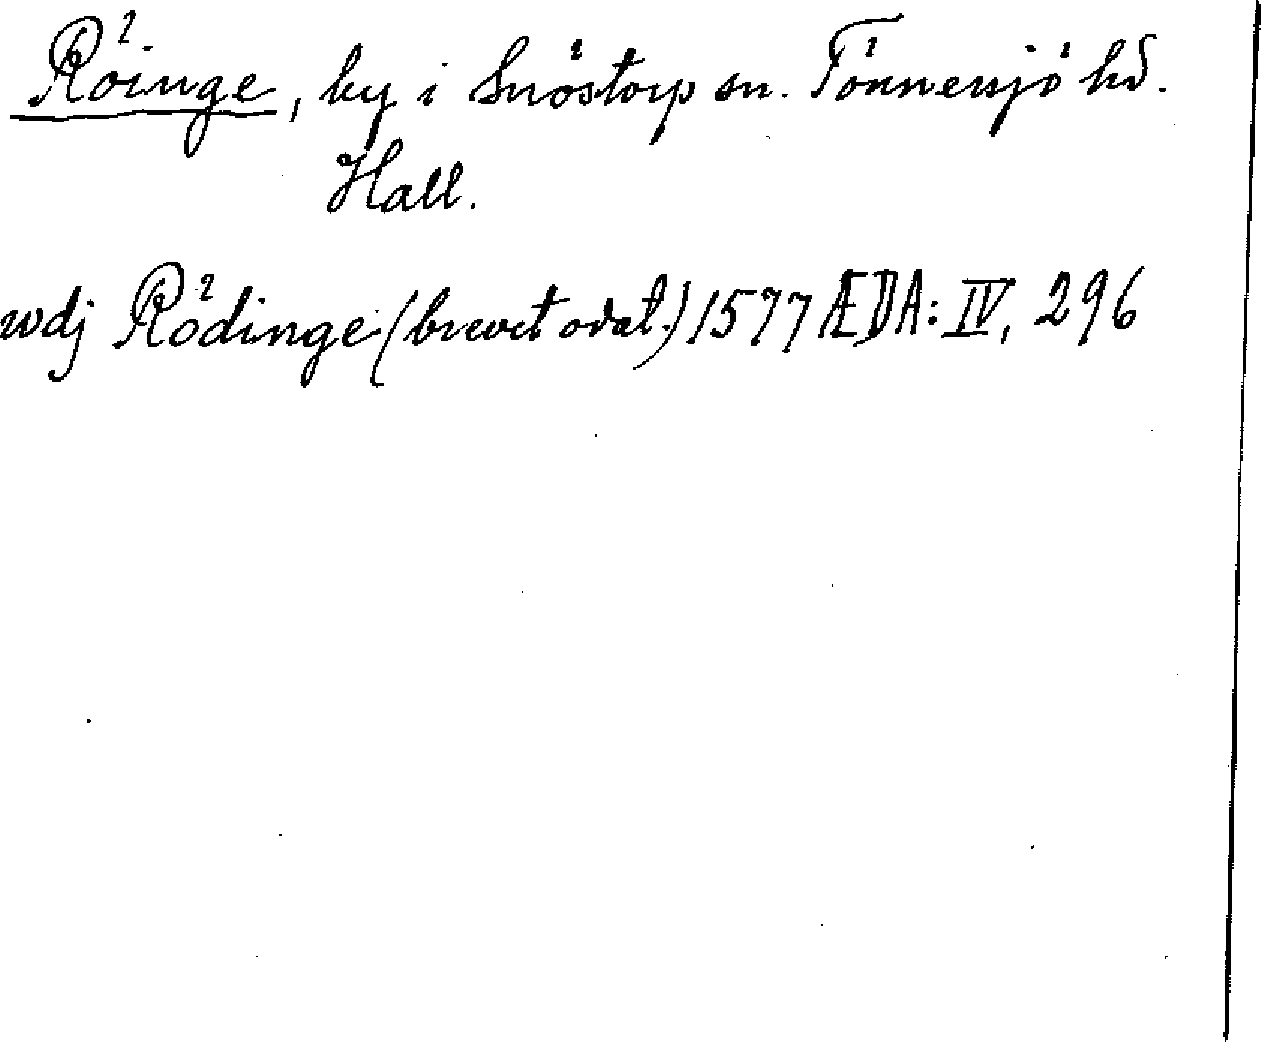 Röinge, by i Snöstorp sn. Tönnersjö hd.
Hall.
wdj Rödinge (brevet odat.) 1577 ÆDA: IV, 296